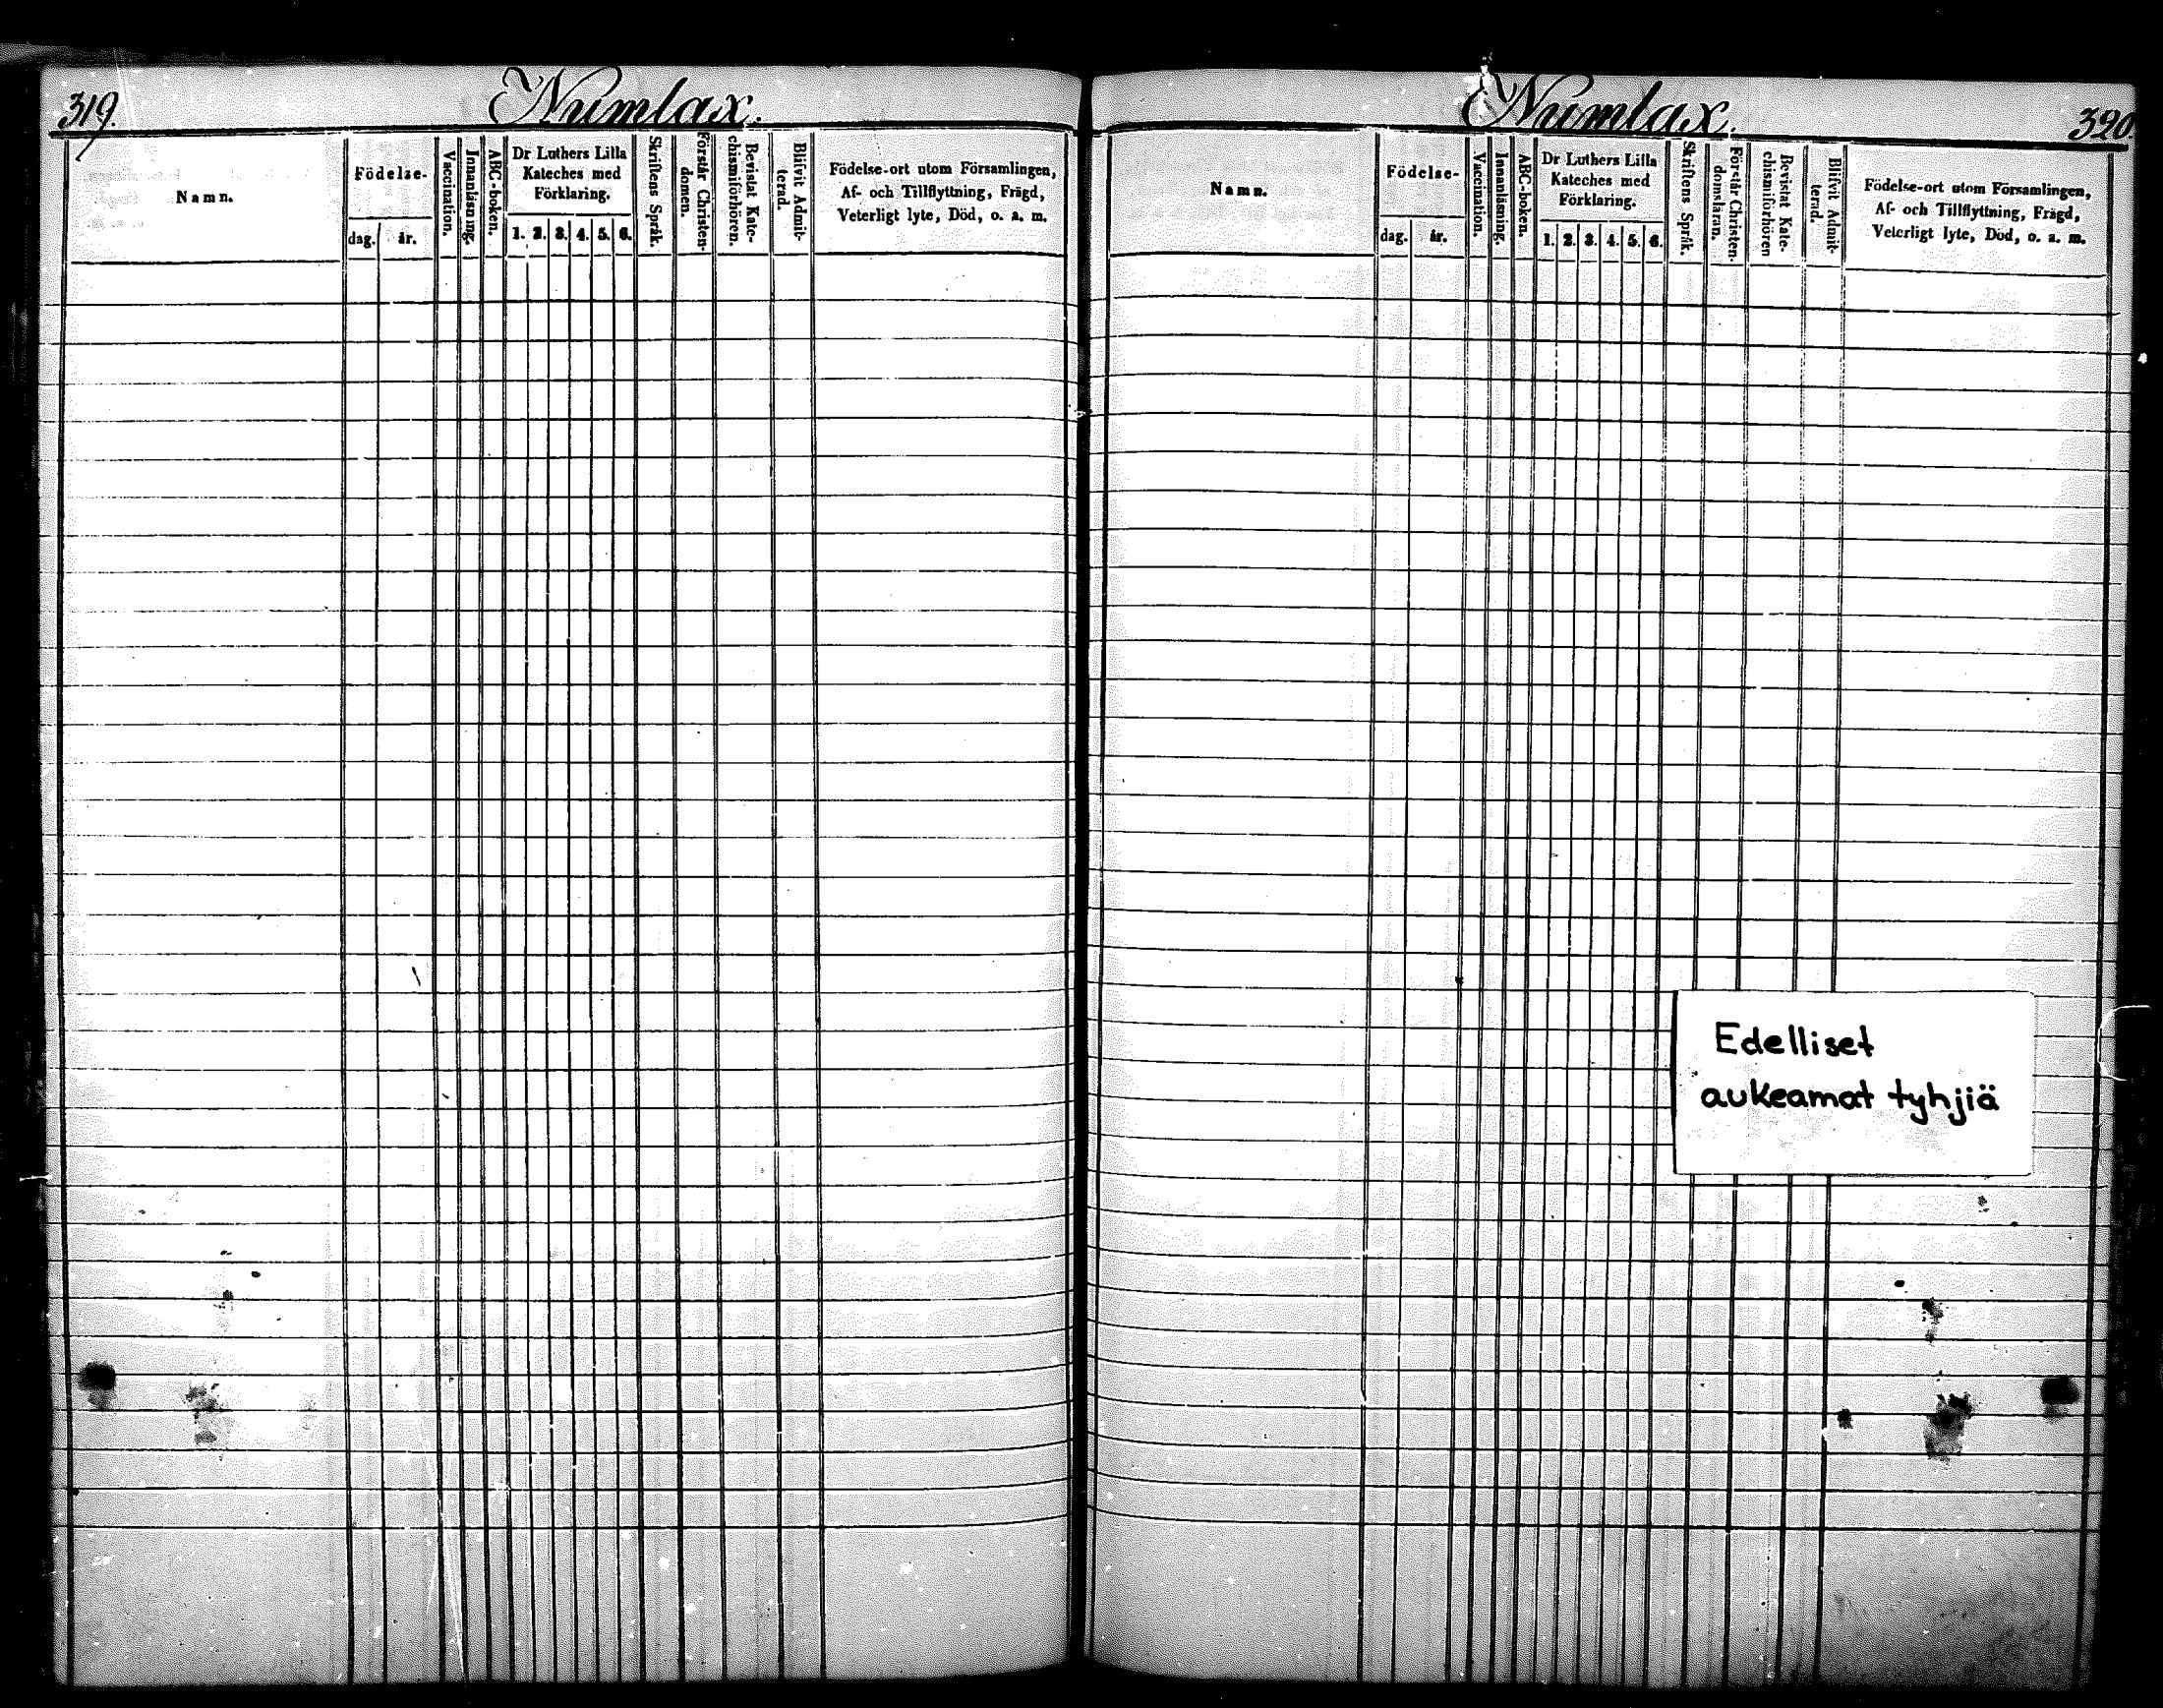 319.
Numlax.
Namn.
Födelse-
dag. år.
Vaccination.
Innanläsning.
ABC-boken.
Dr Luthers Lilla
Kateches med
Förklaring.
1. 2. 3. 4. 5. 6.
Skriftens Språk.
Förstår Christen-
domen.
Bevistat Kate-
chismiförhören.
Blifvit Admit-
terad.
Födelse-ort utom Församlingen,
Af- och Tillflyttning, Frägd,
Veterligt lyte, Död, o. a. m.
Numlax.
320.
Namn.
Födelse-
dag. år.
Vaccination.
Innanläsning.
ABC-boken.
Dr Luthers Lilla
Kateches med
Förklaring.
1. 2. 3. 4. 5. 6.
Skriftens Språk.
Förstår Christen-
domsläran.
Bevistat Kate-
chismiförhören
Blifvit Admit-
terad.
Födelse-ort utom Församlingen,
Af- och Tillflyttning, Frägd,
Veterligt lyte, Död, o. a. m.
Edelliset
aukeamat tyhjiä